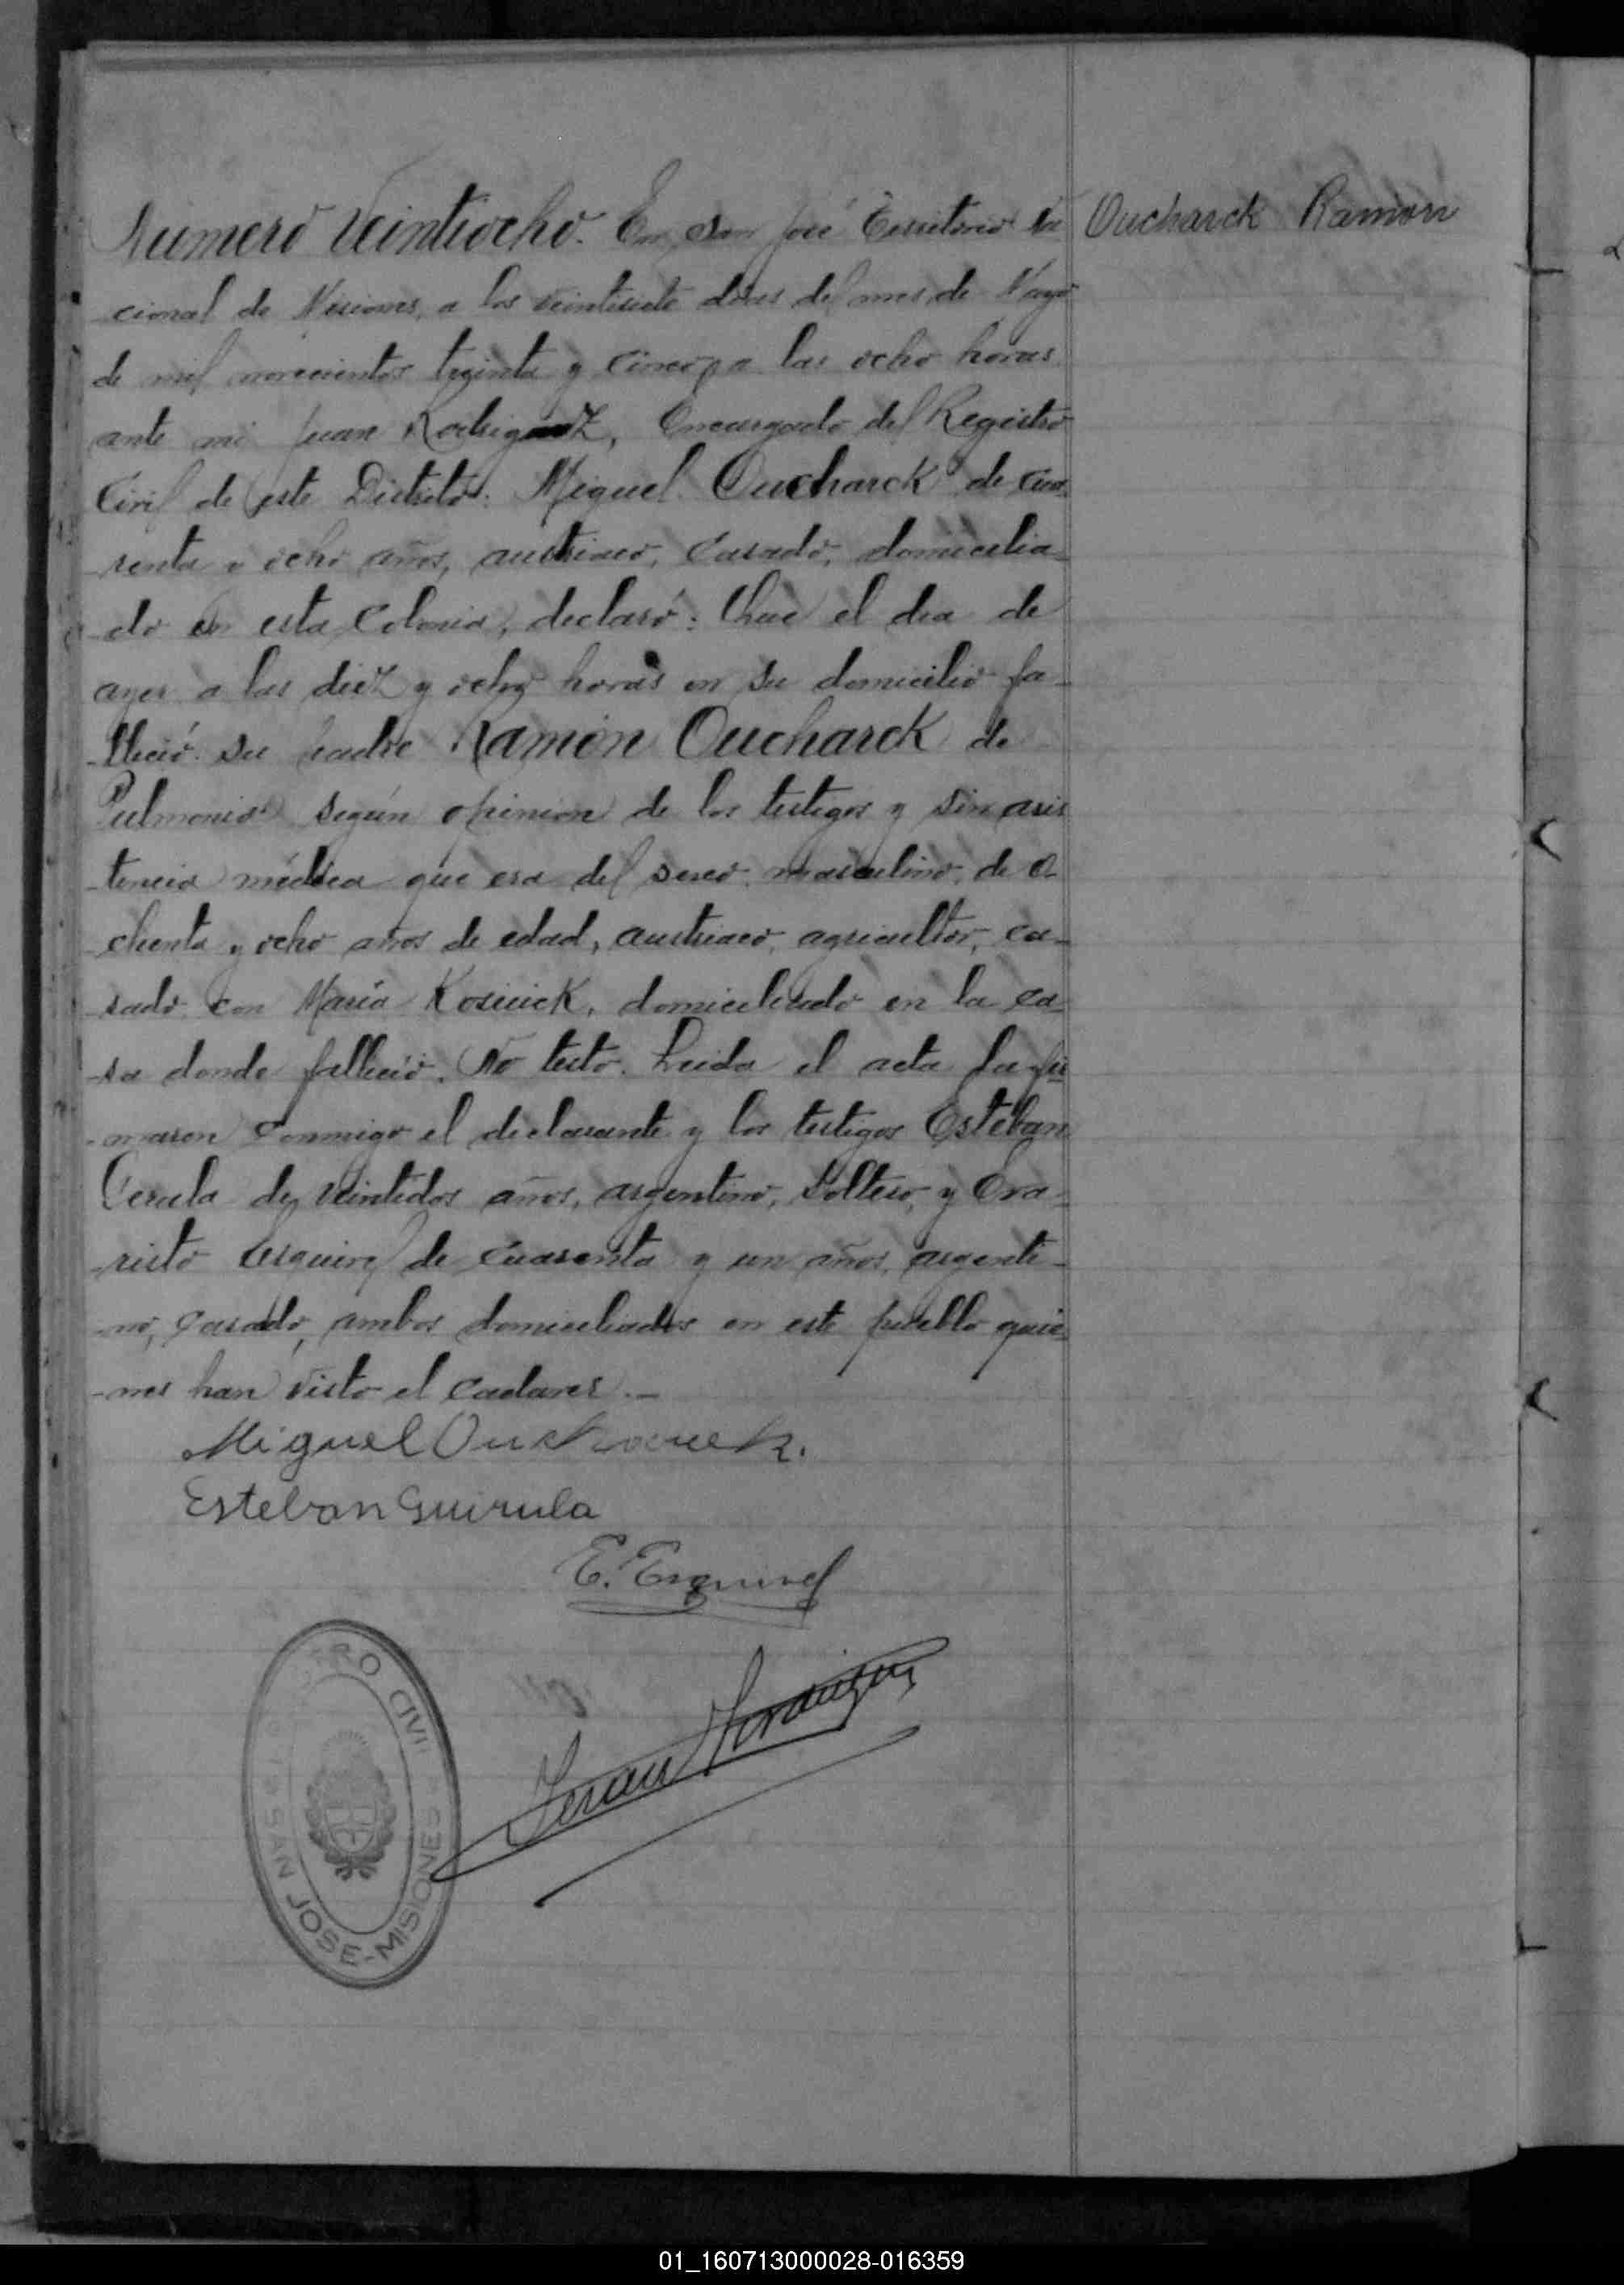 Número Veintiocho. En San José Territorio Na
Oucharck Ramon
cional de Misiones, a los veintisiete dias del mes de Mayo
de mil novecientos treinta y cinco, a las ocho horas
ante mi Juan Rodriguez, Encargado del Registro
Civil de este Distrito: Miguel Oucharck de cua
renta y ocho años, austriaco, casado, domicilia-
do en esta Colonia, declaró: Que el dia de
ayer a las diez y ocho horas en su domicilio fa-
lleció su padre Ramón Oucharck de
Pulmonia según opinion de los testigos y sin asis
tencia médica que era del sexo masculino, de o-
chenta y ocho años de edad, austriaco, agricultor, ca-
sado con María Kosiuick, domiciliado en la ca-
sa donde falleció. No testó. Leida el acta la fir
maron conmigo el declarante y los testigos Esteban
de veintidos años, argentino, soltero, y Eva-
risto Esquivel de cuarenta y un años, argenti-
no, casado, ambos domiciliados en este pueblo quie-
nes han visto el cadaver.-
Miguel
Esteban Guirula
E. Esquivel
Juan Rodriguez
RO CIVIL
SAN JOSE-MISIONES
01_160713000028-016359